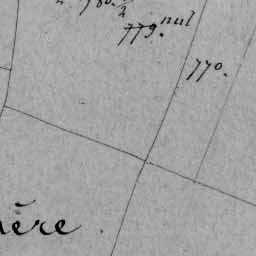 780. 1/2
779. nul
770.
ère.